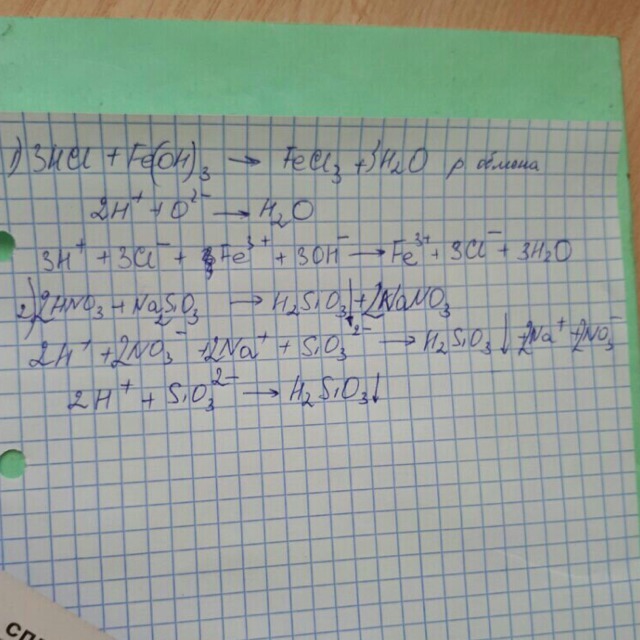 1) 3HCl + Fe(OH)₃ → FeCl₃ + 3H₂O р обмена
2H⁺ + O²⁻ → H₂O
3H⁺ + 3Cl⁻ + Fe³⁺ + 3OH⁻ → Fe³⁺ + 3Cl⁻ + 3H₂O
2) 2HNO₃ + Na₂SiO₃ → H₂SiO₃↓ + 2NaNO₃
2H⁺ + 2NO₃⁻ + 2Na⁺ + SiO₃²⁻ → H₂SiO₃↓ + 2Na⁺ + 2NO₃⁻
2H⁺ + SiO₃²⁻ → H₂SiO₃↓